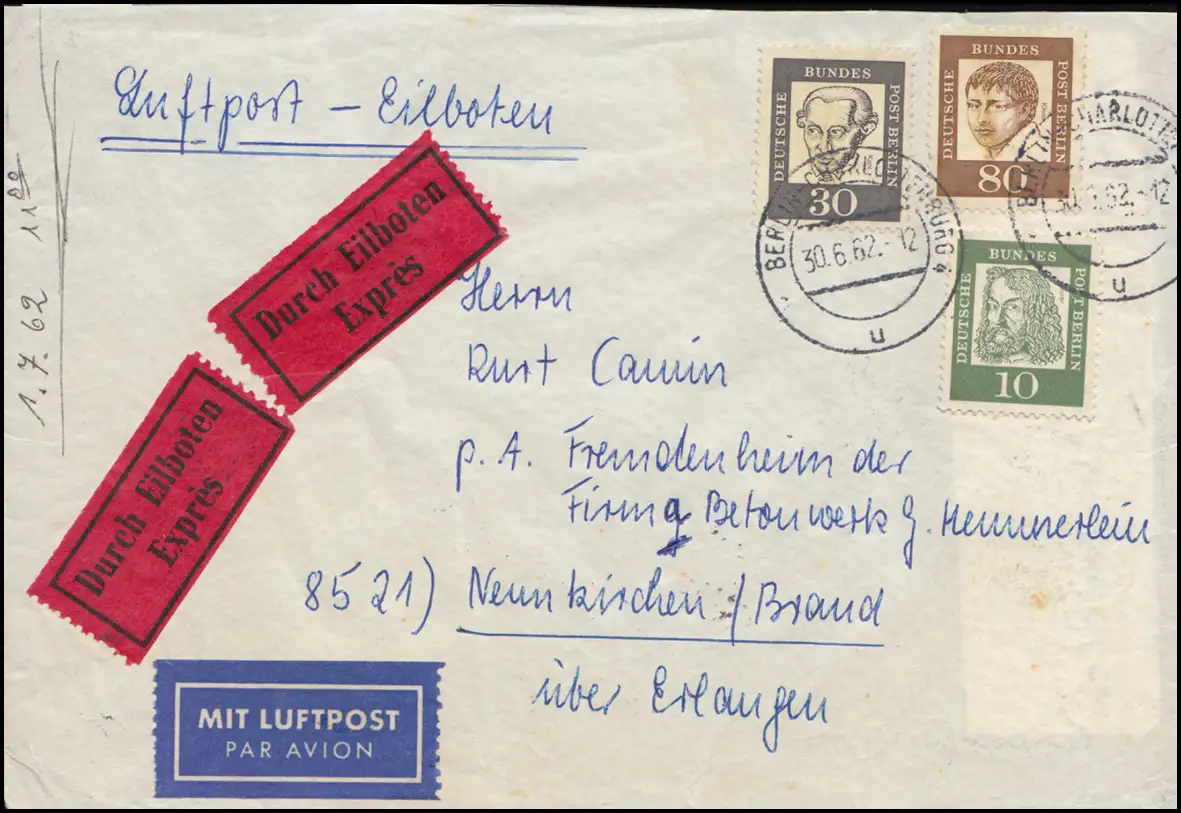 Luftpost – Eilboten
DEUTSCHE BUNDES POST BERLIN
Kant
30
DEUTSCHE BUNDES POST BERLIN
Kleist
80
DEUTSCHE BUNDES POST BERLIN
10
BERLIN-CHARLOTTENBURG 4
30.6.62.-12
u
30.6.62.-12
u
1.7.62 11 00
Durch Eilboten
Exprès
Durch Eilboten
Exprès
Herrn
Kurt Camin
p. A. Fremdenheim der
Firma Betonwerk G. Hemmerlein
8521) Neunkirchen / Brand
über Erlangen
MIT LUFTPOST
PAR AVION